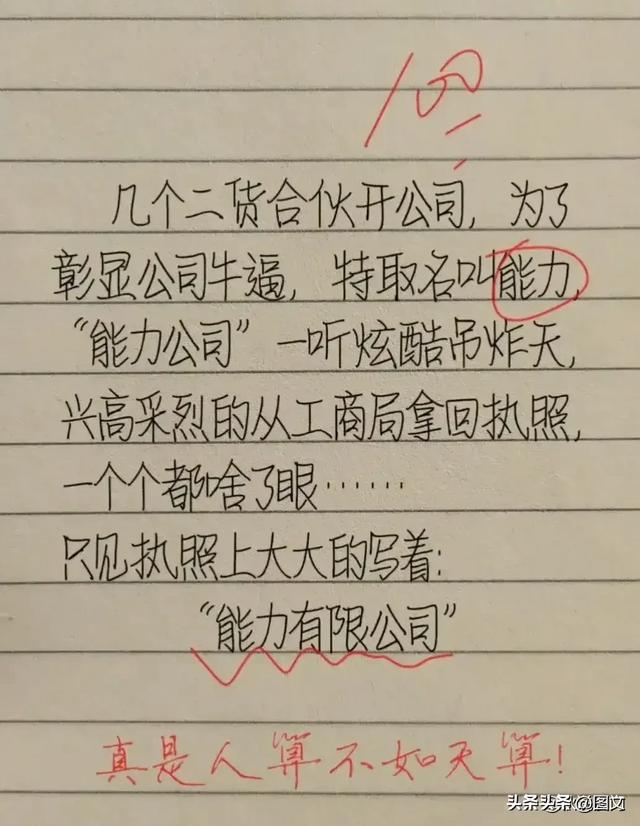 100
几个二货合伙开公司,为了
彰显公司牛逼,特取名叫能力,
“能力公司”一听炫酷吊炸天,
兴高采烈的从工商局拿回执照,
一个个都啥了眼……
只见执照上大大的写着:
“能力有限公司”
真是人算不如天算!
头条头条@图文